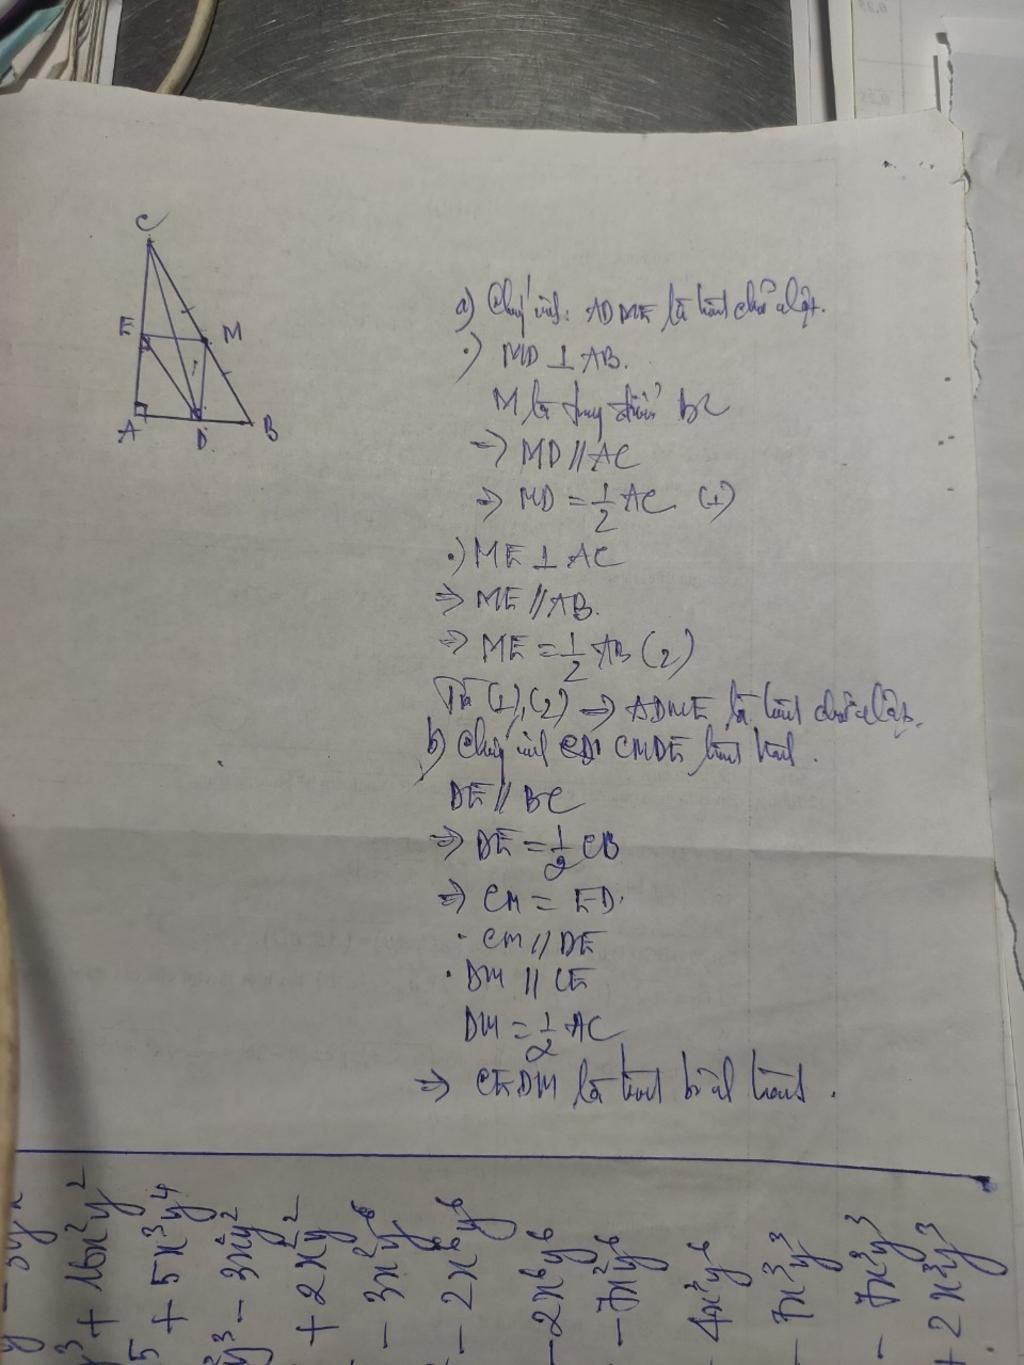 C
E
M
A
D
B
a) Chứng minh: ADME là hình chữ nhật.
•) MD ⊥ AB.
M là trung điểm BC
=> MD // AC
=> MD = 1/2 AC (1)
•) ME ⊥ AC
=> ME // AB.
=> ME = 1/2 AB (2)
Từ (1), (2) => ADME là hình chữ nhật.
b) Chứng minh CMDE hình bình hành.
DE // BC
=> DE = 1/2 CB
=> CM = ED.
• CM // DE
• DM // CE
DM = 1/2 AC
=> CEDM là hình bình hành.
y³ + 16x²y²
5 + 5x³y⁴
y³ - 3x²y²
+ 2x²y²
- 3x²y⁶
- 2x⁶y⁶
- 2x⁶y⁶
- 7x²y⁶
4x²y⁶
- 7x³y³
- 7x³y³
+ 2x³y³